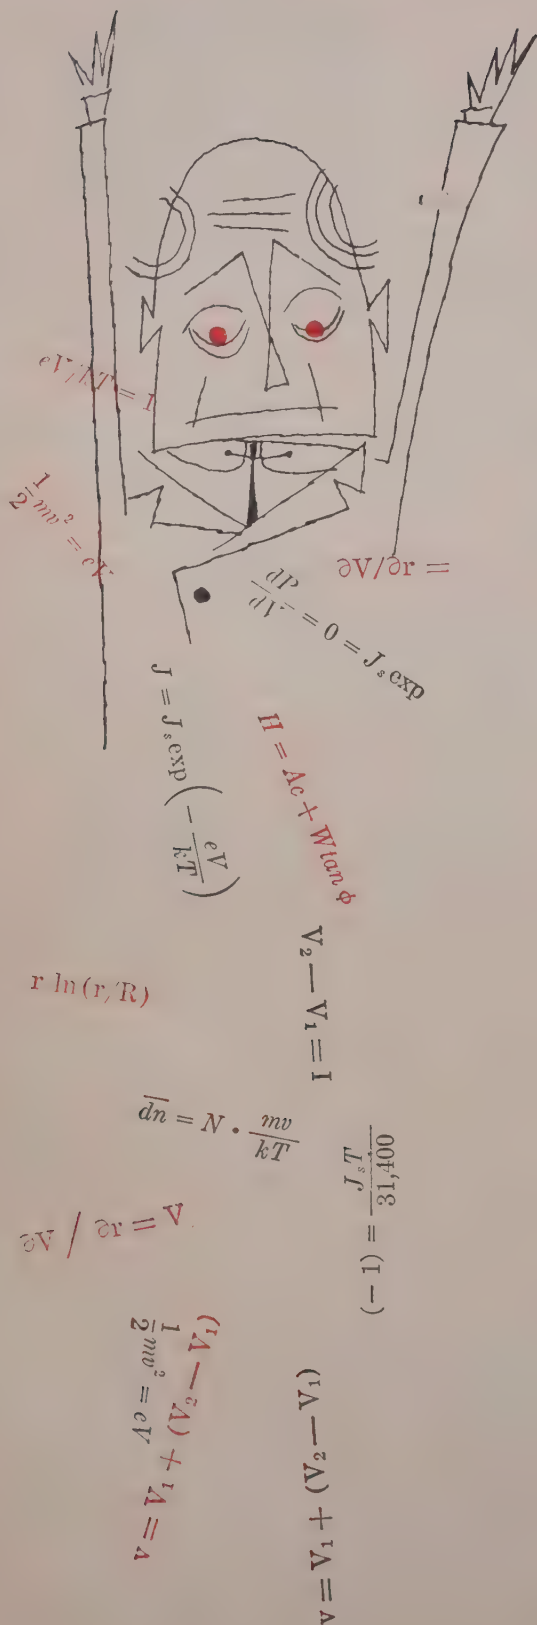 eV/kT = 1
1/2 mv² = eV
∂V/∂r =
dP/dV = 0 = Jₛ exp
J = Jₛ exp(− eV/kT)
H = Ac + W tan ϕ
V₂ — V₁ = I
r ln(r/R)
d̅n̅ = N · mv/kT
(− 1) = JₛT/31,400
∂V / ∂r = V
1/2 mv² = eV
v = V₁ + (V₂ — V₁)
v = V₁ + (V₂ — V₁)